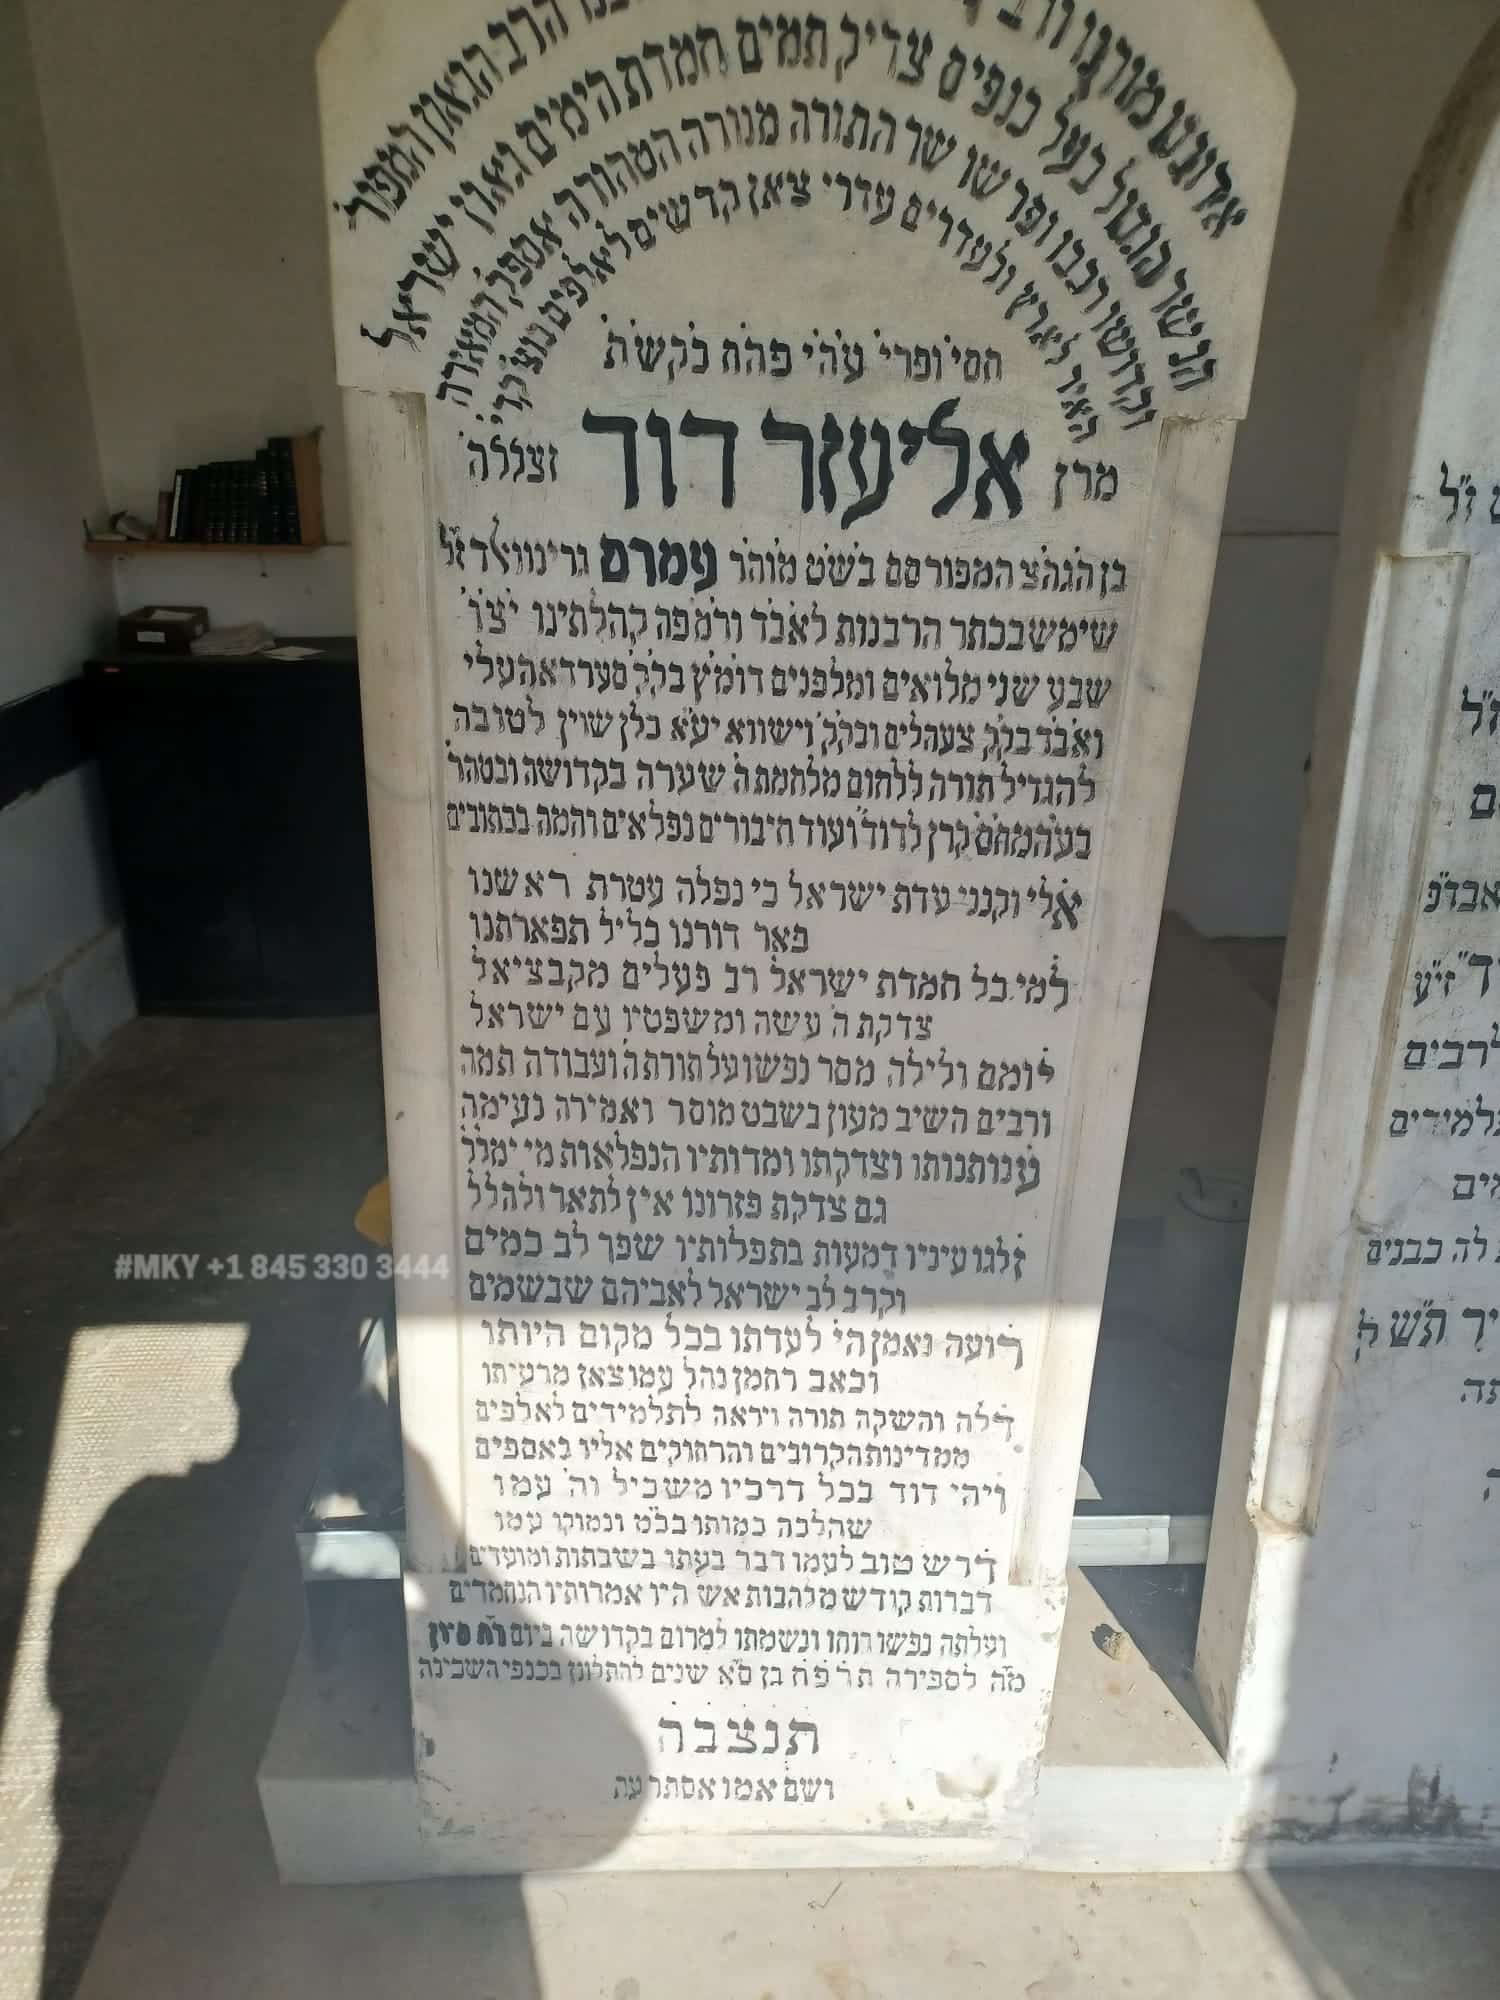 אדונינו מורנו ורב הרב הגאון המפור׳
הנשר הגדול בעל כנפים צדיק תמים חמדת הימים גאון ישראל
וקדושו רכבו ופרשו שר התורה מנורה הטהורה אספק׳ המאירה
האיר לארץ ולעדרים עדרי צאן קדשים לאלפים
חסי׳ ופרי׳ עה״י פה״ח בקש״ת
מרן אליעזר דוד זצללה׳
בן הגה״צ המפורסם בש״ט מוהר עמרם גרינוואלד ז״ל
שימש בכתר הרבנות לאב״ד ור״מ פה קהלתינו יצ״ו
שבע שני מלואים ומלפנים דומ״ץ בק״ק סערדאהעלי
ואב״ד בק״ק צעהלים ובק״ק וישווא יע״א כלן שוין לטובה
להגדיל תורה ללחום מלחמת ה׳ שערה בקדושה ובטהר׳
בעהמח״ס קרן לדוד ועוד חיבורים נפלאים והמה בכתובים
אלי וקנני עדת ישראל כי נפלה עטרת ראשנו
פאר דורנו כליל תפארתנו
למי כל חמדת ישראל רב פעלים מקבציאל
צדקת ה׳ עשה ומשפטיו עם ישראל
יומם ולילה מסר נפשו על תורת ה׳ ועבודה תמה
ורבים השיב מעון בשבט מוסר ואמירה נעימה
ענותנותו וצדקתו ומדותיו הנפלאות מי ימלל
גם צדקת פזרונו אין לתאר ולהלל
זלגו עיניו דמעות בתפלותיו שפך לב כמים
וקרב לב ישראל לאביהם שבשמים
רועה נאמן הי׳ לעדתו בכל מקום היותו
וכאב רחמן נהל עמו צאן מרעיתו
דלה והשקה תורה ויראה לתלמידים לאלפים
ממדינות הקרובים והרחוקים אליו נאספים
ויהי דוד בכל דרכיו משכיל וה׳ עמו
שהלכה כמותו בכ״מ ונמוקו עמו
דרש טוב לעמו דבר בעתו בשבתות ומועדים
דברות קודש מלהבות אש היו אמרותיו הנחמדים
ועלתה נפשו רוחו ונשמתו למרום בקדושה ביום ר״ח סיון
מ״ה לספירה תרפ״ח בן ס״א שנים להתלונן בכנפי השכינה
תנצבה
ושם אמו אסתר ע״ה
ז״ל
אבד״פ
זי״ע
לרבים
תלמידים
לה כבנים
#MKY +1 845 330 3444